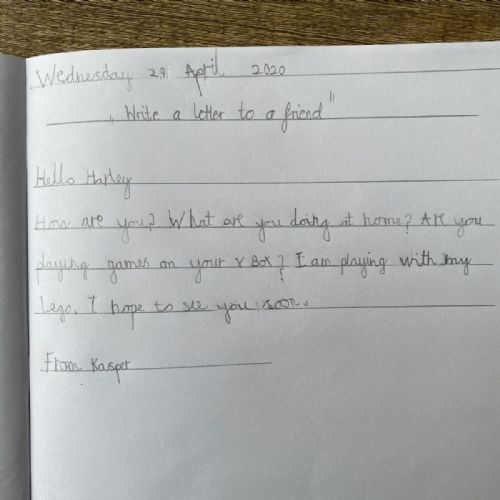 Wednesday 29 April 2020
„Write a letter to a friend"
Hello Harley
How are you? What are you doing at home? Are you
playing games on your X Box? I am playing with my
Lego. I hope to see you soon.
From Kasper